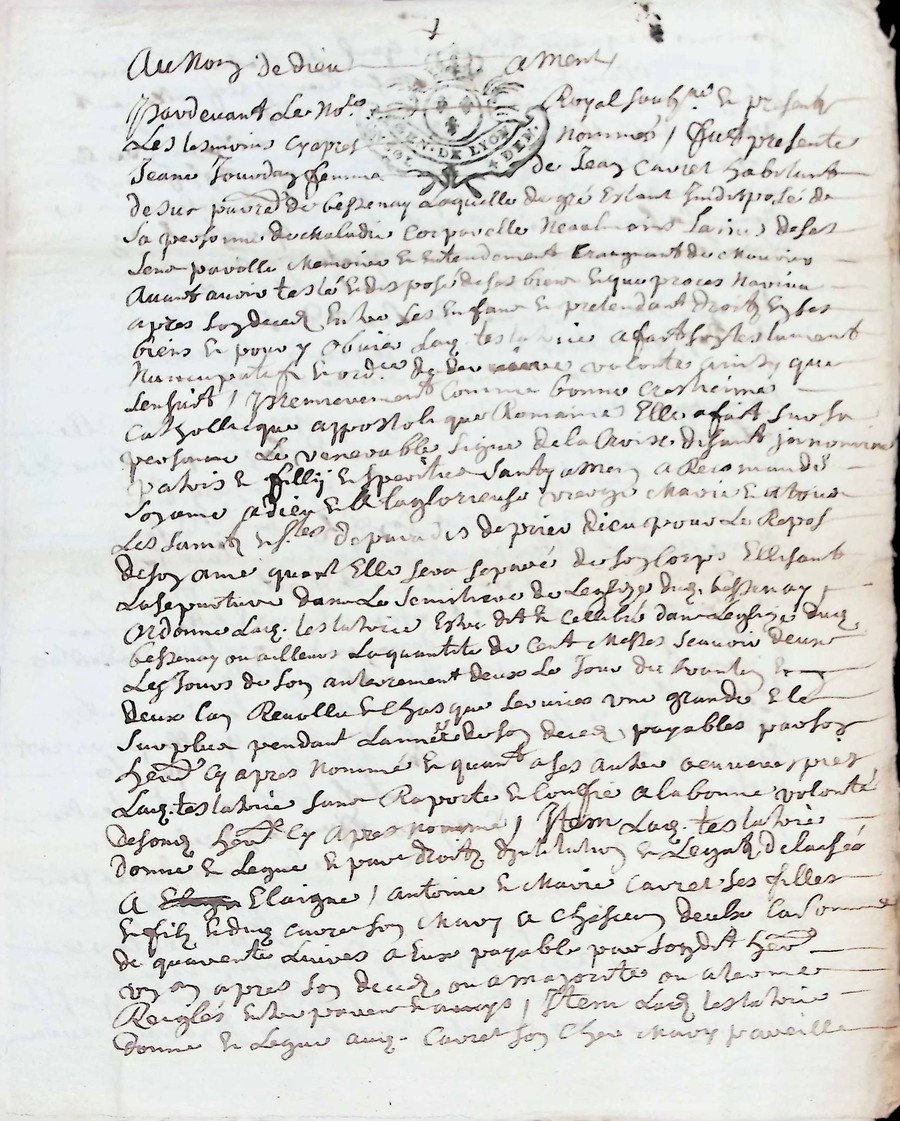 Au Nom de dieu amen
Pardevant Le No.re Royal soubz.né Et presentz
Les tesmoins Cyapres Nommés / fust presente
Jeane Jourdan femme de Jean Carret habitant
de sus parre de bessenay Laquelle de gré Estant Indisposé de
sa personne de Maladie Corporelle Neaulmoins saine de ses
sens parolle Memoire Et Entendement Craignant de Mourir
Avant avoir testé Et disposé de ses biens Et que proces Navint
apres son deces Entre Ses Enfans Et pretendant droitz En ses
biens Et pour y Obvier Laq. testatrice a fait son testament
Nuncupatif Et ord.ce de der volonte Ainsy que
Sensuit / premierement Comme bonne Crestienne
Catholique appostolique Romaine Elle a fait sur sa
personne Le venerable signe de la Croix disant In nomine
patris Et fillij Et speritus Santy amen a Recomandé
son ame a dieu Et A la glorieuse vierge Marie Et a tous
Les Saintz Et stes de paradis de prier dieu pour Le Repos
de son ame quant Elle sera separé de son Corps Ellisant
La sepulture dans Le Semitiere de Leglize dud. bessenay
Ordonne Laq. testatrice Estre dit Et Celebré dans Leglize dud.
bessenay ou ailleurs La quantité de Cent Messes scavoir deux
Les Jours de son anterrement deux Le Jour de Et
deux Lan Revollu Et Chasque services une grande Et le
surplus pendant Lannée de son deces payables par son
her. Cy apres Nommé Et quant a ses autres oeuvres pies
Laq. testatrice sans Raporte Et Confie a la bonne volonté
de sond. her. Cy Apres nommé / Item Laq. testatrice
donne Et Legue Et par droitz dinstitution Et Legatz delaissé
A Claigne / antoine Et Marie Carret ses filles
Et filz Et dud. Carret son Mary a Chascun deulx La somme
de quarente Livres a Eux payable par sondit her.
un an apres son deces ou a majorité ou a termes
Reiglés Entre parens Et amys / Item Laq. testatrice
donne Et Legue aud. Carret son Cher Mary pareille
GEN. DE LYON